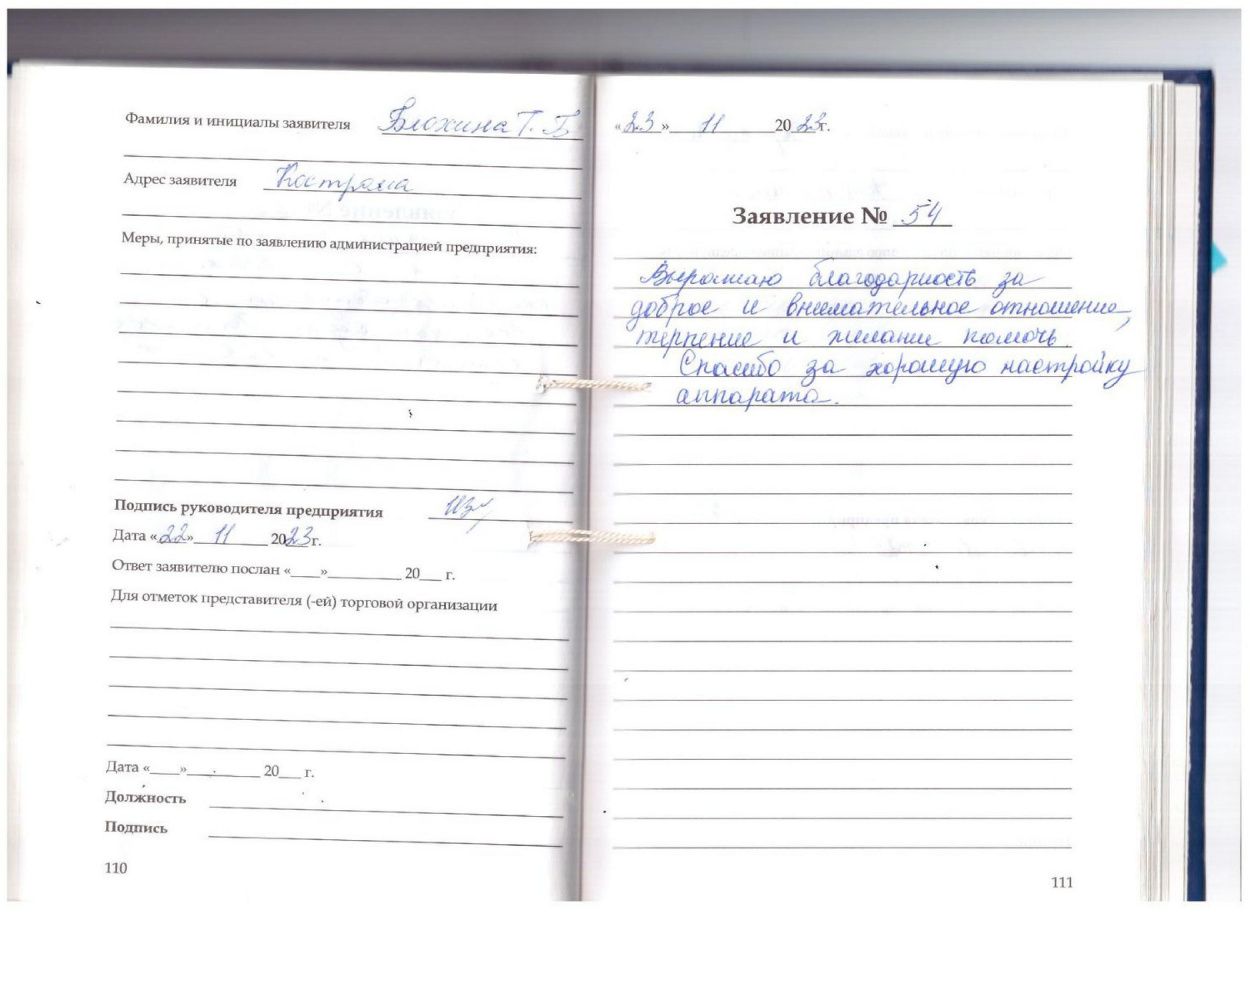 Фамилия и инициалы заявителя Блохина Т. Б
Адрес заявителя Кострома
Меры, принятые по заявлению администрацией предприятия:
Подпись руководителя предприятия
Дата «22» 11 2023 г.
Ответ заявителю послан «____»__________ 20___ г.
Для отметок представителя (-ей) торговой организации
Дата «____»__________ 20___ г.
Должность
Подпись
110
«23» 11 2023г.
Заявление № 54
Выражаю благодарность за
доброе и внимательное отношение,
терпение и желание помочь.
Спасибо за хорошую настройку
аппарата.
111